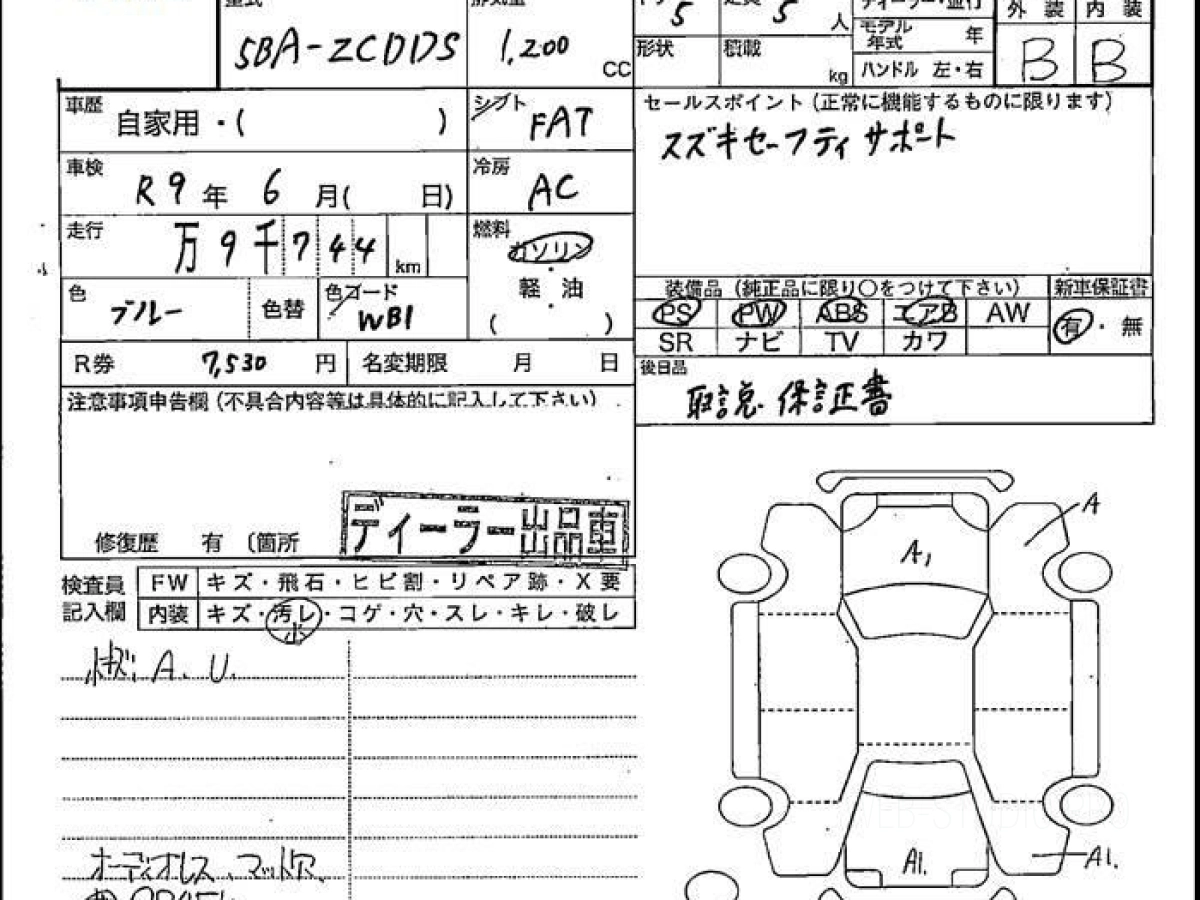 型式
5BA-ZCDDS
排気量
1,200
CC
ドア
5
定員
5
人
ディーラー・並行
モデル年式
年
外装 内装
B B
形状
積載
kg
ハンドル 左・右
車歴
自家用・( )
シフト
FAT
セールスポイント(正常に機能するものに限ります)
スズキセーフティサポート
車検
R9年 6月( 日)
冷房
AC
走行
万9千744
km
燃料
ガソリン
軽油
( )
色
ブルー
色替
色コード
WB1
装備品(純正品に限り○をつけて下さい) 新車保証書
PS PW ABS エアB AW
有・無
SR ナビ TV カワ
R券 7,530円
名変期限 月 日
後日品
取説 保証書
注意事項申告欄(不具合内容等は具体的に記入して下さい)
修復歴 有 (箇所
ディーラー出品車
検査員記入欄
FW キズ・飛石・ヒビ割・リペア跡・X要
内装 キズ・汚レ・コゲ・穴・スレ・キレ・破レ
小
小キズ、A、U、
オーディオレス、マット欠、
A
A1
A1.
A1.